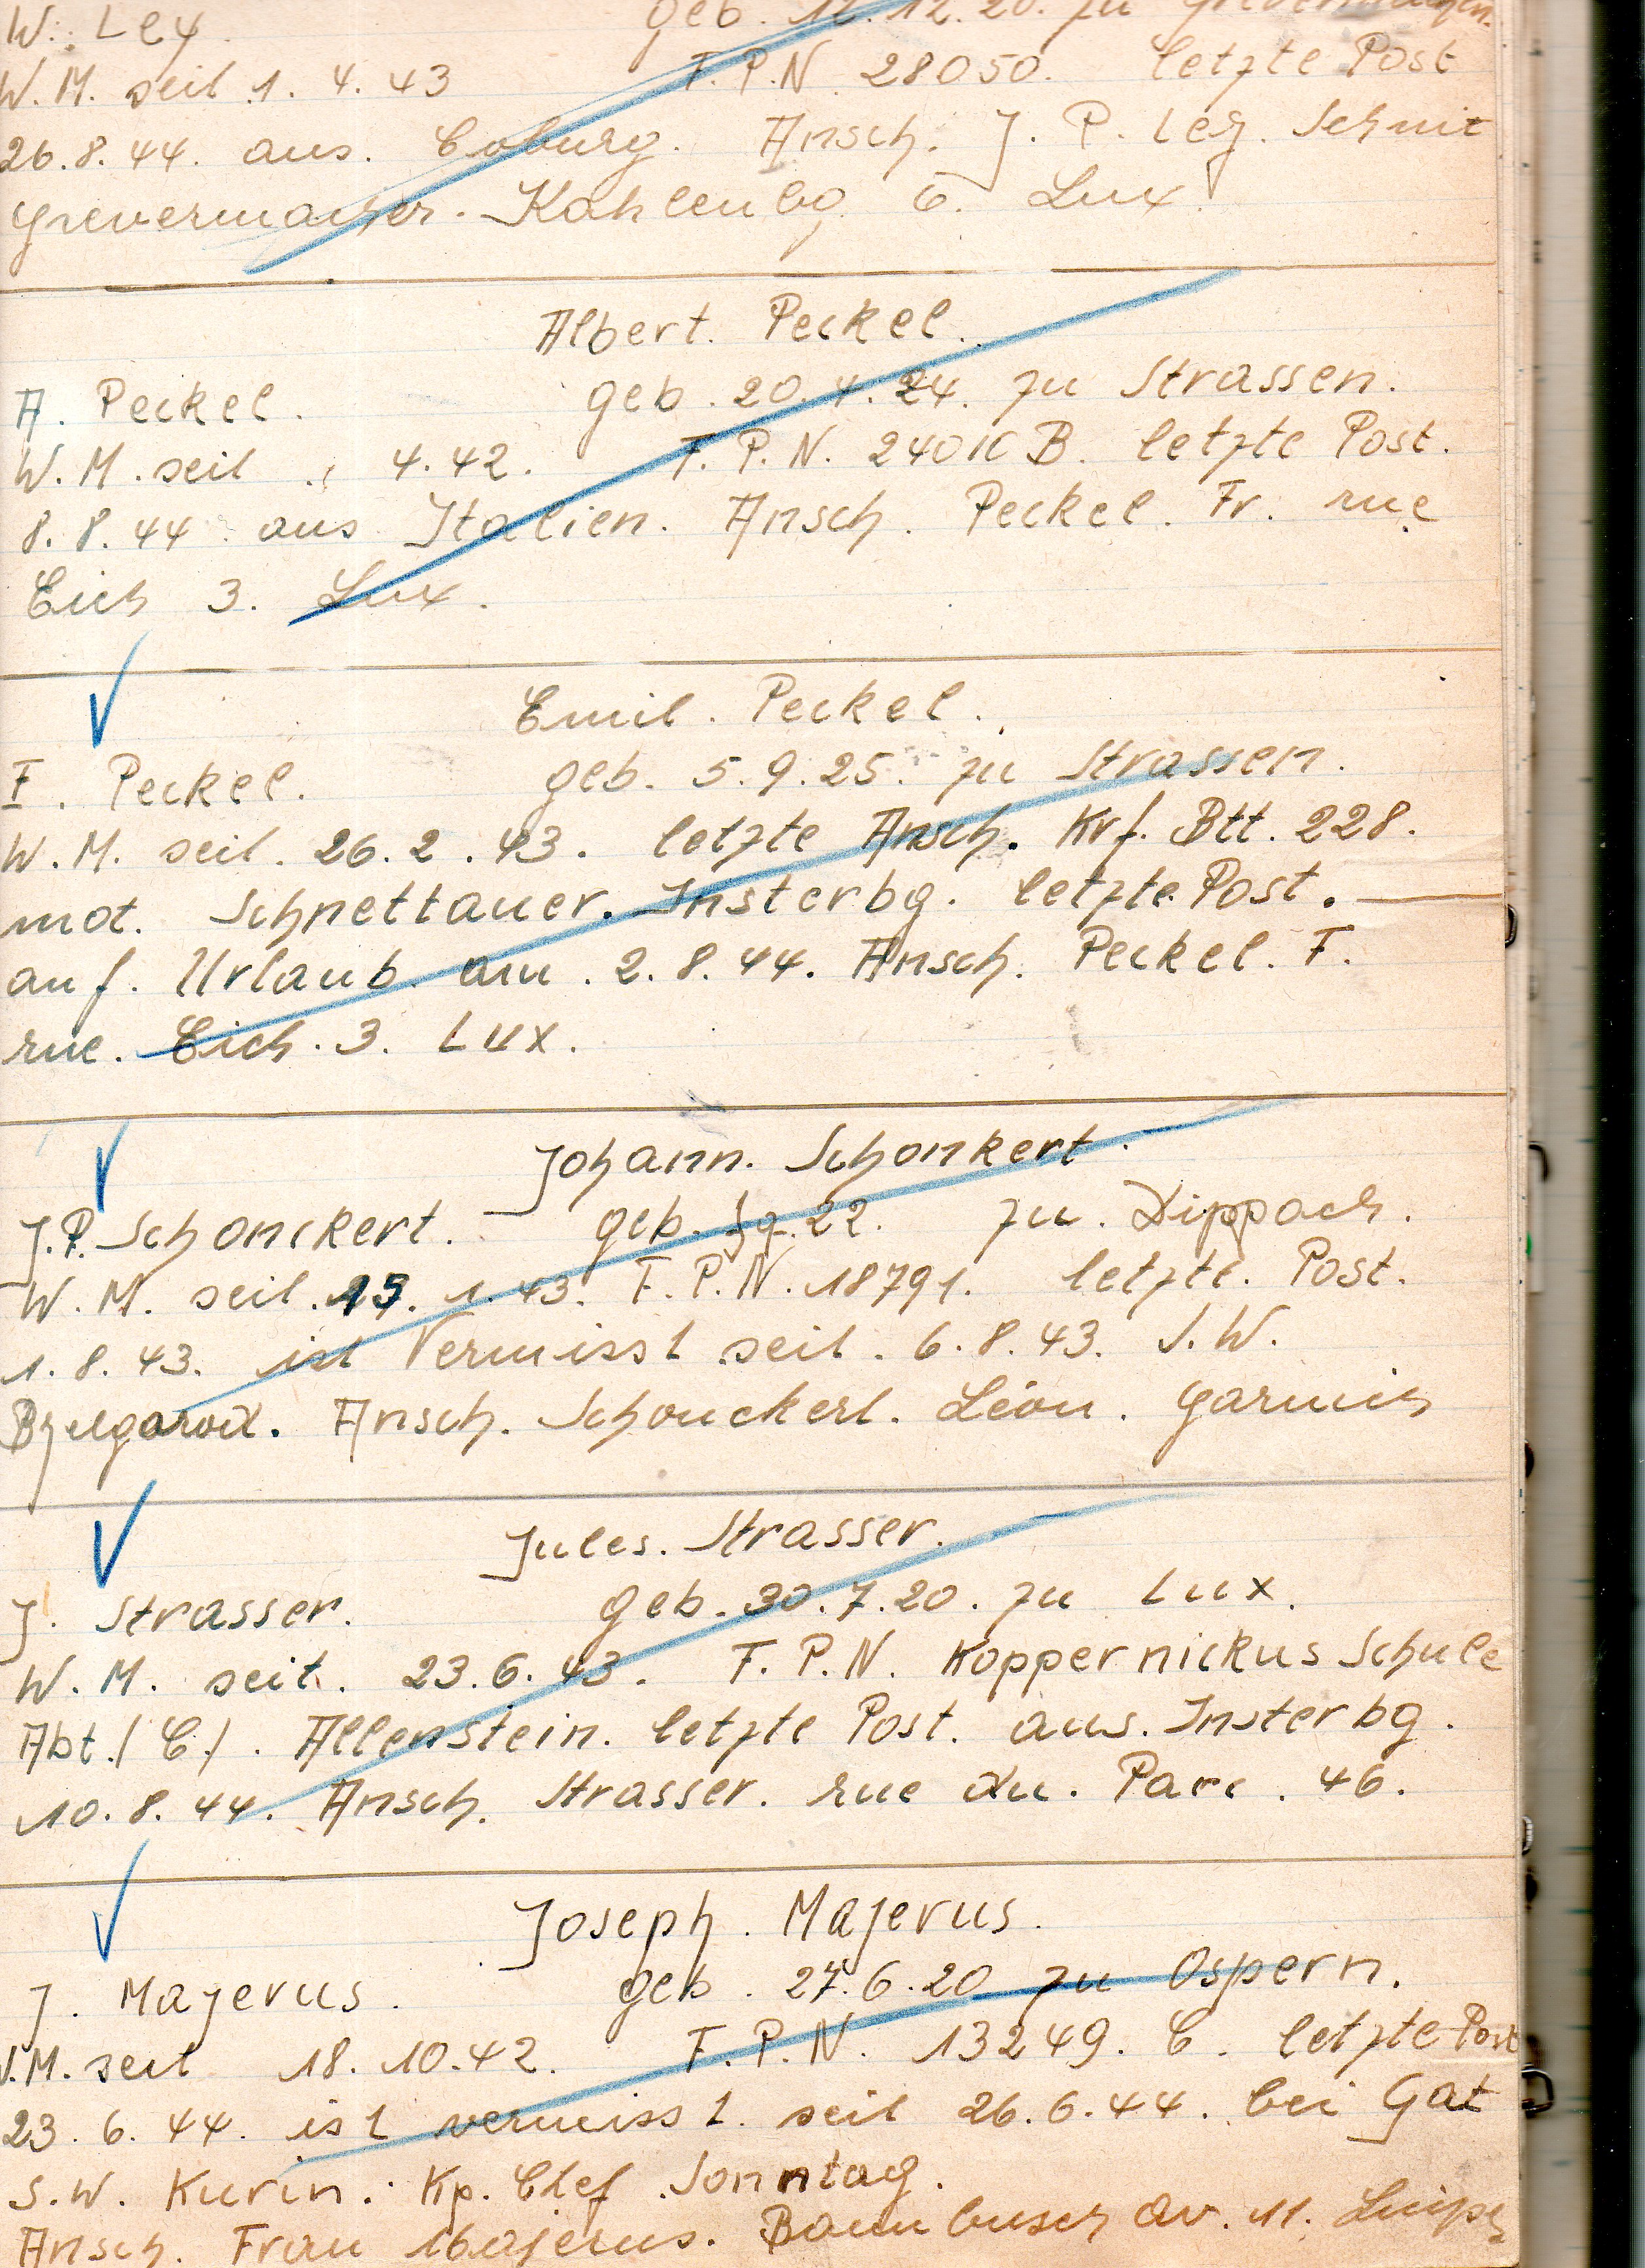 W. Ley. geb. 12.12.20. zu
W.M. seit 1. 4. 43 F.P.N 28050. letzte Post
26.8.44. aus. Coburg. Ansch. J. P. Ley. Schmit
Grevermacher. Kahlenbg 6. Lux.
Albert. Peckel.
A. Peckel. geb. 20.4.24. zu Strassen.
W.M. seit 4.42. F.P.N. 2401C B. letzte Post.
8.8.44 aus Italien. Ansch. Peckel. Fr. rue
Eich 3. Lux.
Emil. Peckel.
E. Peckel. geb. 5.9.25. zu Strassen.
W.M. seit. 26.2.43. letzte Ansch. Krf. Btt. 228.
mot. Schnettauer. Insterbg. letzte Post.
auf. Urlaub. am. 2.8.44. Ansch. Peckel. F.
rue. Eich. 3. Lux.
Johann. Schonkert.
J.P. Schonckert. geb. 22. zu. Dippach.
W.M. seit. 19. 1. 43. F.P.N. 18791. letzte. Post.
1.8.43. ist Vermisst seit. 6.8.43. S.W.
Bjelgorod. Ansch. Schonckert. Léon. Garnich
Jules. Strasser.
J. Strasser. geb. 30.7.20. zu Lux.
W.M. seit. 23.6.43. F.P.N. Koppernickus Schule
Abt. (C). Allenstein. letzte Post. aus. Insterbg.
10.8.44. Ansch. Strasser. rue du. Parc. 46.
Joseph. Majerus.
J. Majerus. geb. 27.6.20 zu Ospern.
W.M. seit 18.10.42. F.P.N. 13249. C. letzte Post
23.6.44. ist vermisst. seit 26.6.44. bei Gat
S.W. Kurin. Kp. Chef Sonntag.
Ansch. Frau Majerus. Baumbusch Av. 11.